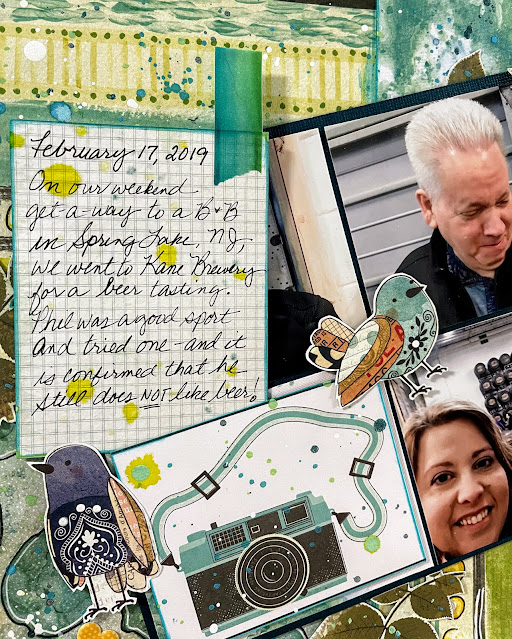 February 17, 2019
On our weekend
get a way to a B+B
in Spring Lake, NJ,
we went to Kane Brewery
for a beer tasting.
Phil was a good sport
and tried one - and it
is confirmed that he
still does NOT like beer!